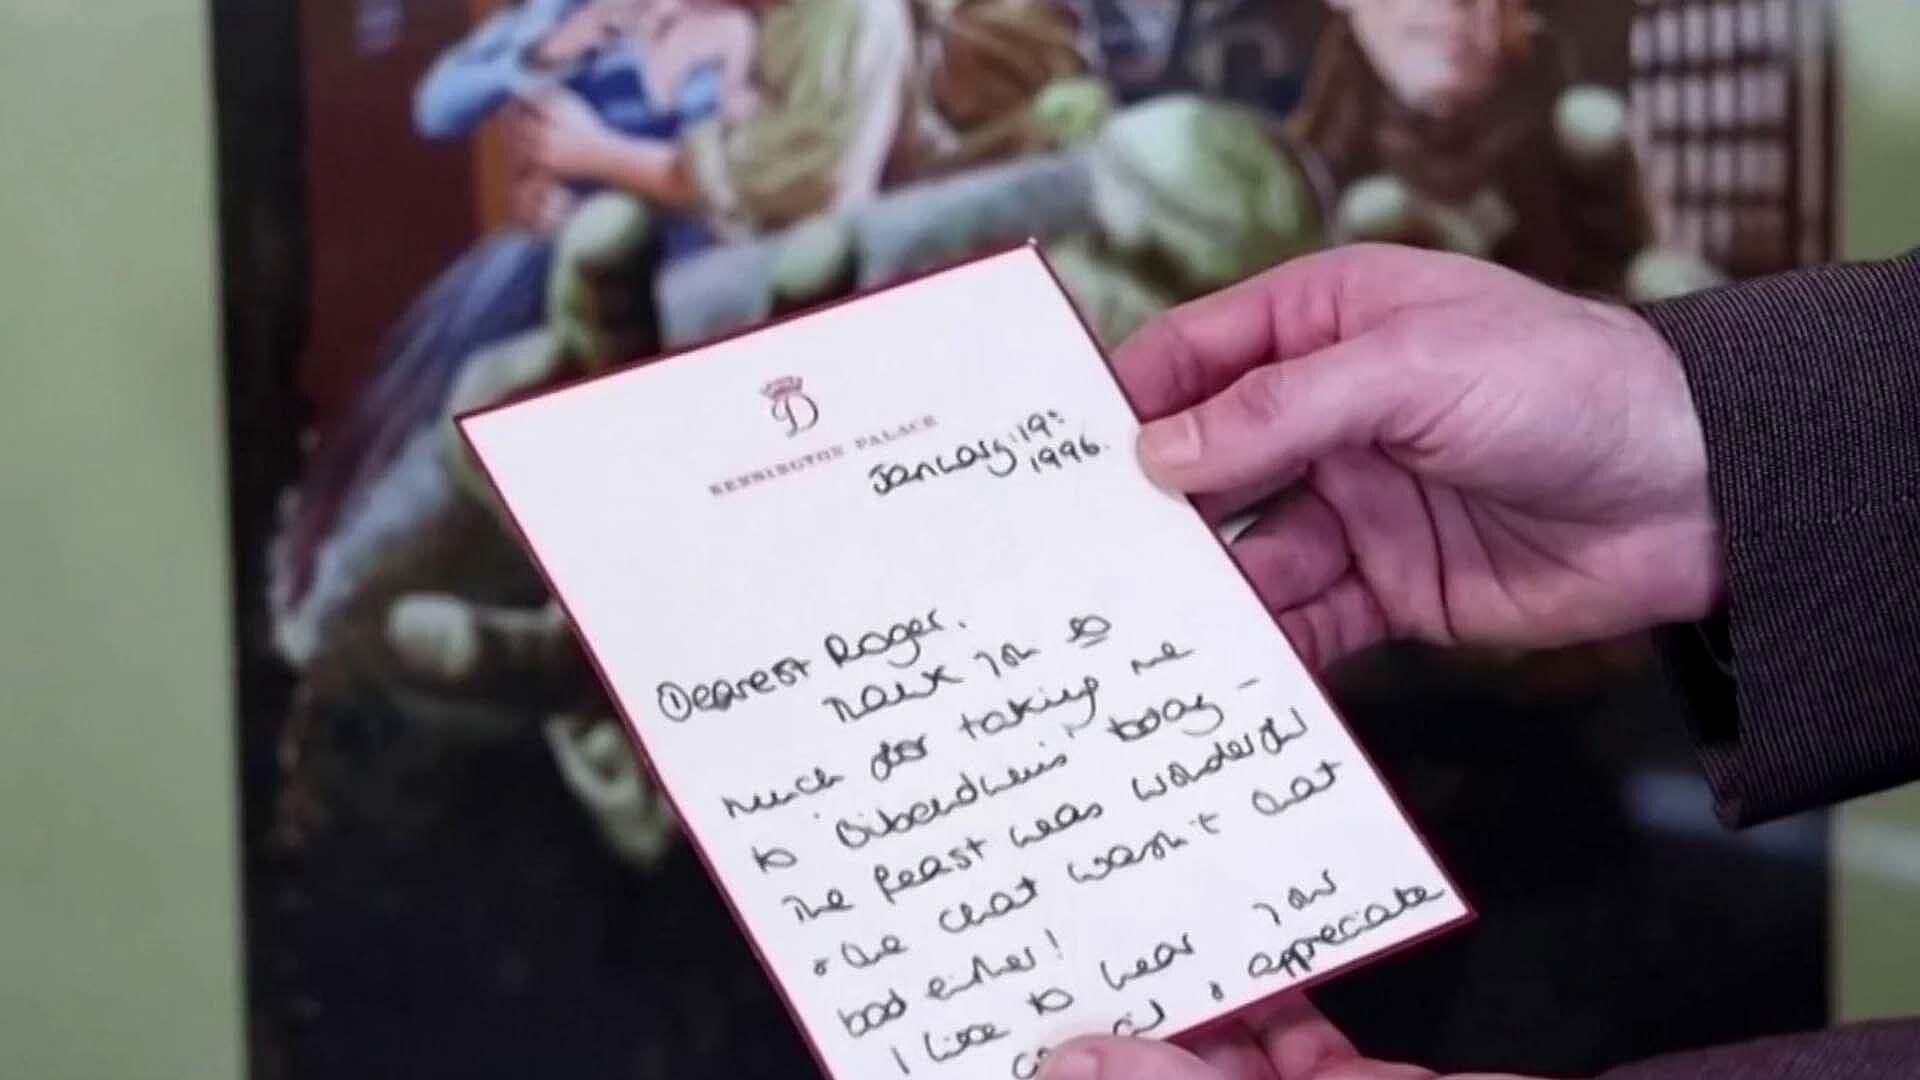 D
KENSINGTON PALACE
January 19:
1996.
Dearest Roger.
Thank you so
much for taking me
to 'Bibendum's' today -
The feast was wonderful
& the chat wasn't that
bad either!
I like to hear your
& appreciate